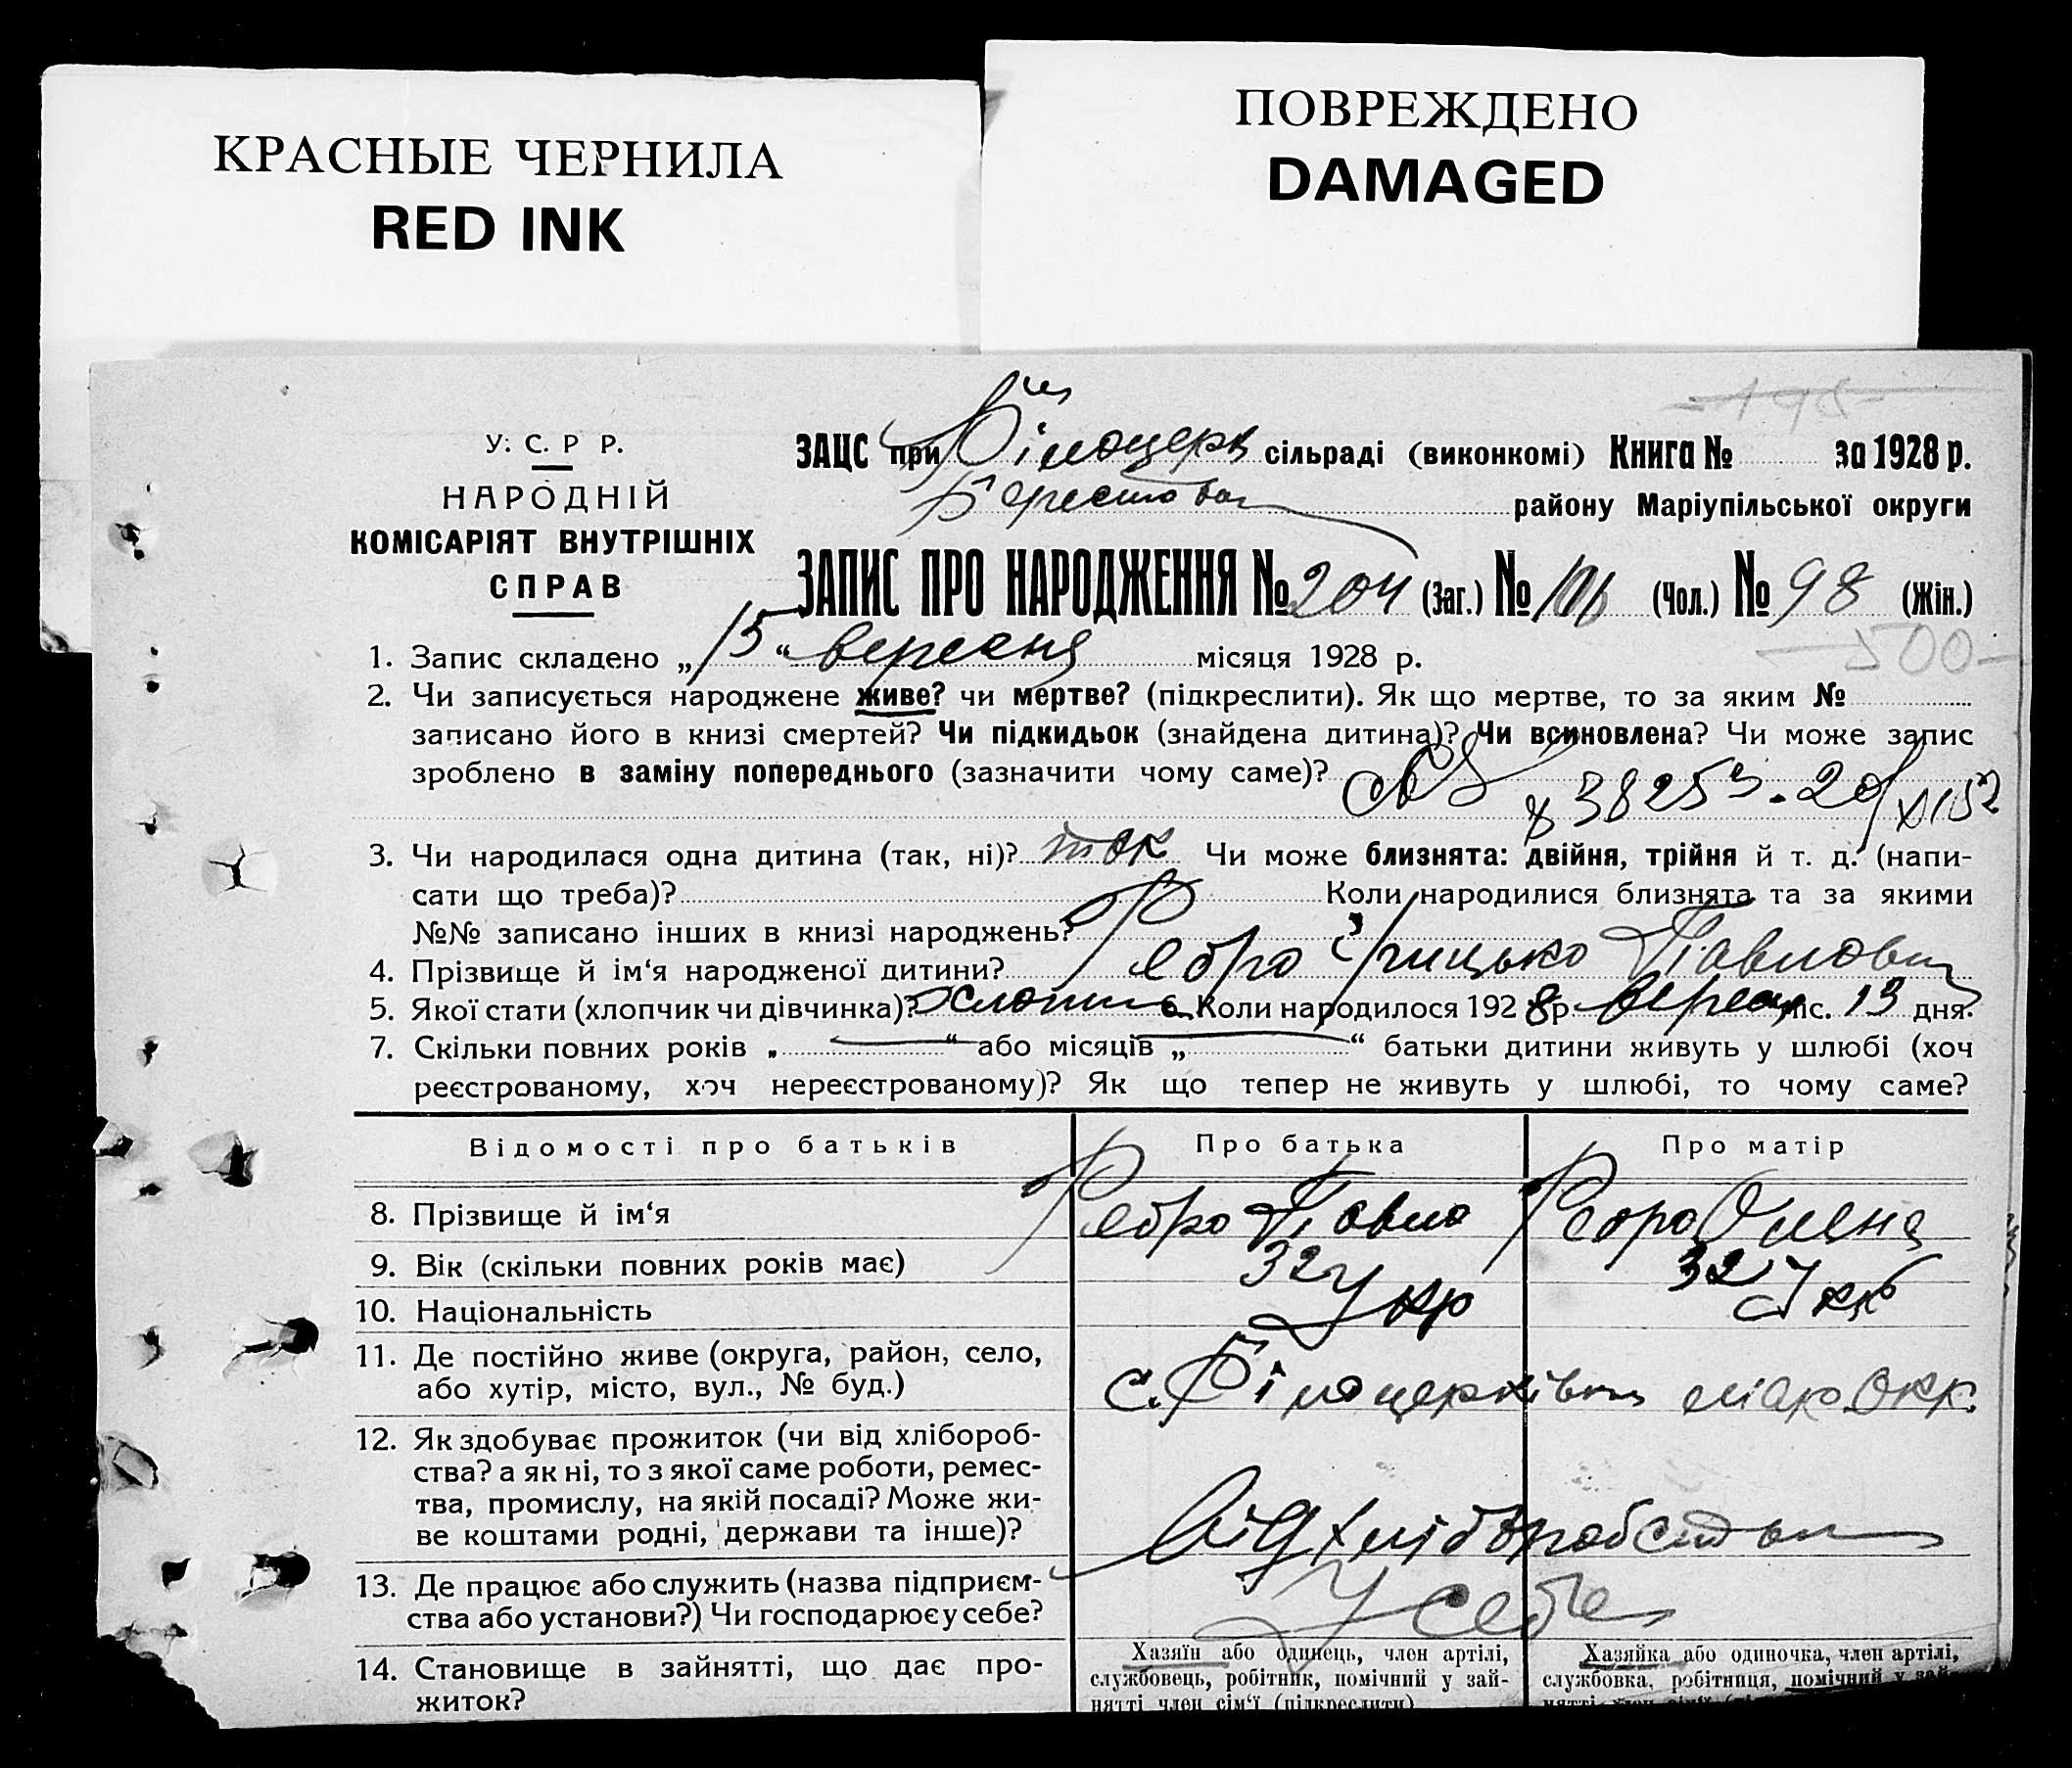 КРАСНЫЕ ЧЕРНИЛА
RED INK
ПОВРЕЖДЕНО
DAMAGED
У. С. Р Р.
НАРОДНІЙ
КОМІСАРІЯТ ВНУТРІШНІХ
СПРАВ
ЗАЦС при Білоцерк сільраді (виконкомі) Книга № за 1928 р.
Берестов району Маріупільської округи
ЗАПИС ПРО НАРОДЖЕННЯ № 204 (Заг.) № 106 (Чол.) № 98 (Жін.)
1. Запис складено „15“ вересня місяця 1928 р.
500
2. Чи записується народжене живе? чи мертве? (підкреслити). Як що мертве, то за яким №
записано його в книзі смертей? Чи підкидьок (знайдена дитина)? Чи всиновлена? Чи може запис
зроблено в заміну попереднього (зазначити чому саме)?
38253
3. Чи народилася одна дитина (так, ні)? так Чи може близнята: двійня, трійня й т. д. (напи-
сати що треба)? Коли народилися близнята та за якими
№№ записано інших в книзі народжень?
4. Прізвище й ім‘я народженої дитини? Ребро Грицько Павлович
5. Якої стати (хлопчик чи дівчинка)? 6. Коли народилося 1928 р. верес міс. 13 дня.
7. Скільки повних років „ “ або місяців „ “ батьки дитини живуть у шлюбі (хоч
реєстрованому, хоч нереєстрованому)? Як що тепер не живуть у шлюбі, то чому саме?
Відомості про батьків Про батька Про матір
8. Прізвище й ім‘я Ребро Павло Ребро Олена
9. Вік (скільки повних років має) 32 32
10. Національність Укр Укр
11. Де постійно живе (округа, район, село,
або хутір, місто, вул., № буд.) с. Білоцерківка Мар. Окр.
12. Як здобуває прожиток (чи від хлібороб-
ства? а як ні, то з якої саме роботи, ремес-
тва, промислу, на якій посаді? Може жи-
ве коштами родні, держави та інше)? Від хліборобства
13. Де працює або служить (назва підприєм-
ства або установи?) Чи господарює у себе? У себе
14. Становище в зайнятті, що дає про-
житок?
Хазяїн або одинець, член артілі,
службовець, робітник, помічний у зай-
нятті член сім‘ї (підкреслити)
Хазяйка або одиночка, член артілі,
службовка, робітниця, помічний у зай-